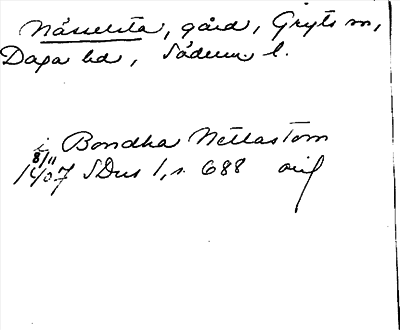 Nässelsta, gård, Gryts sn,
Daga hd, Söderm l.
i Bondha Netlastom
8/11
1407 SDns 1, s. 688 orig